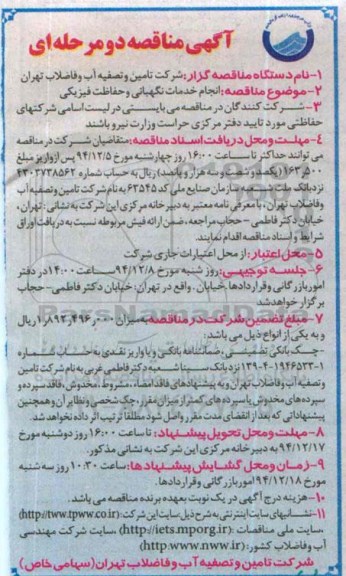 آگهی مناقصه دو مرحله ای
۱-نام دستگاه مناقصه گزار: شرکت تامین و تصفیه آب و فاضلاب تهران
۲-موضوع مناقصه: انجام خدمات نگهبانی و حفاظت فیزیکی
۳- شرکت کنندگان در مناقصه می بایستی در لیست اسامی شرکتهای
حفاظتی مورد تایید دفتر مرکزی حراست وزارت نیرو باشند
۴-مهلت و محل دریافت اسناد مناقصه: متقاضیان شرکت در مناقصه
می توانند حداکثر تا ساعت ۱۶:۰۰ روز چهارشنبه مورخ ۹۴/۱۲/۵ پس از واریز مبلغ
۱۶۳٫۵۰۰ (یکصد و شصت و سه هزار و پانصد) ریال به حساب شماره ۴۳۰۳۷۳۸۵۶۲
نزد بانک ملت شعبه سازمان صنایع ملی کد ۶۳۵۴۵ به نام شرکت تامین و تصفیه آب
وفاضلاب تهران، با معرفی نامه معتبر به دبیرخانه مرکزی این شرکت به نشانی: تهران،
خیابان دکتر فاطمی - حجاب مراجعه، ضمن ارائه فیش مربوطه نسبت به دریافت اوراق
شرایط و اسناد مناقصه اقدام نمایند.
۵-محل اعتبار: از محل اعتبارات جاری شرکت
۶- جلسه توجیهی: روز شنبه مورخ ۹۴/۱۲/۸ ساعت ۱۴:۰۰ در دفتر
امور بازرگانی و قراردادها، خیابان . واقع در تهران: خیابان دکتر فاطمی-حجاب
برگزار خواهد شد
۷- مبلغ تضمین شرکت در مناقصه به میزان ۱٫۸۹۳٫۴۹۶٫۰۰۰ ریال
و به یکی از انواع ذیل می باشد:
-چک بانکی تضمینی، ضمانتنامه بانکی و یا واریز نقدی به حساب شماره
۱-۱۹۴۶۵۳۳-۴-۱۳۹ نزد بانک سینا شعبه دکتر فاطمی غربی به نام شرکت تامین
و تصفیه آب وفاضلاب تهران و به پیشنهادهای فاقد امضاء، مشروط، مخدوش، فاقد سپرده و
سپرده های مخدوش یا سپرده های کمتر از میزان مقرر، چک شخصی و نظایر آن و همچنین
پیشنهاداتی که بعد از انقضای مدت مقرر واصل شود مطلقا ترتیب اثر داده نخواهد شد.
۸- مهلت و محل تحویل پیشنهاد: تا ساعت ۱۶:۰۰ روز دوشنبه مورخ
۹۴/۱۲/۱۷ به دبیرخانه مرکزی این شرکت به نشانی مذکور.
۹-زمان و محل گشایش پیشنهادها: ساعت ۱۰:۳۰ روز سه شنبه
مورخ ۹۴/۱۲/۱۸ امور بازرگانی و قراردادها.
۱۰-هزینه درج آگهی در یک نوبت بعهده برنده مناقصه می باشد.
۱۱-نشانیهای سایت اینترنتی به شرح ذیل: سایت این شرکت: (http://tww.tpww.co.ir)
-سایت ملی مناقصات: (http://iets.mporg.ir) سایت شرکت مهندسی
آب وفاضلاب کشور: (http:www.nww.ir)
شرکت تامین و تصفیه آب و فاضلاب تهران (سهامی خاص)